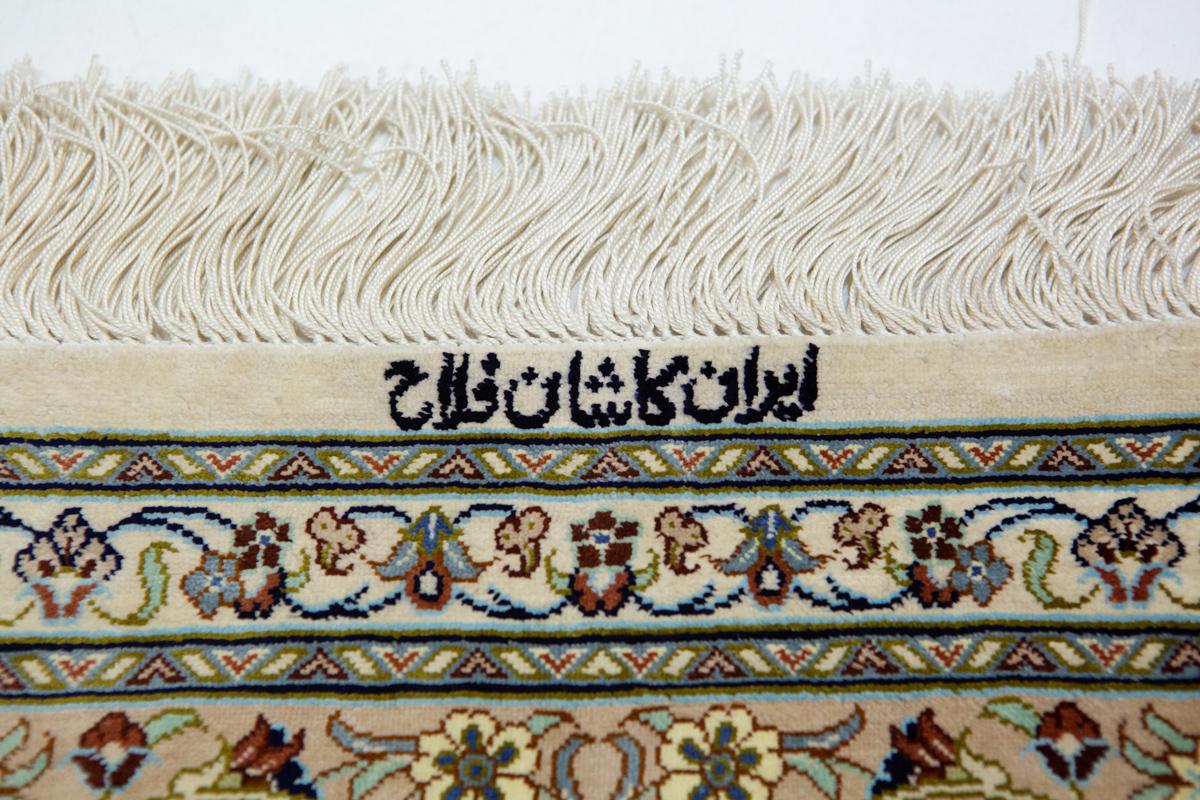 ایران کاشان فلاح